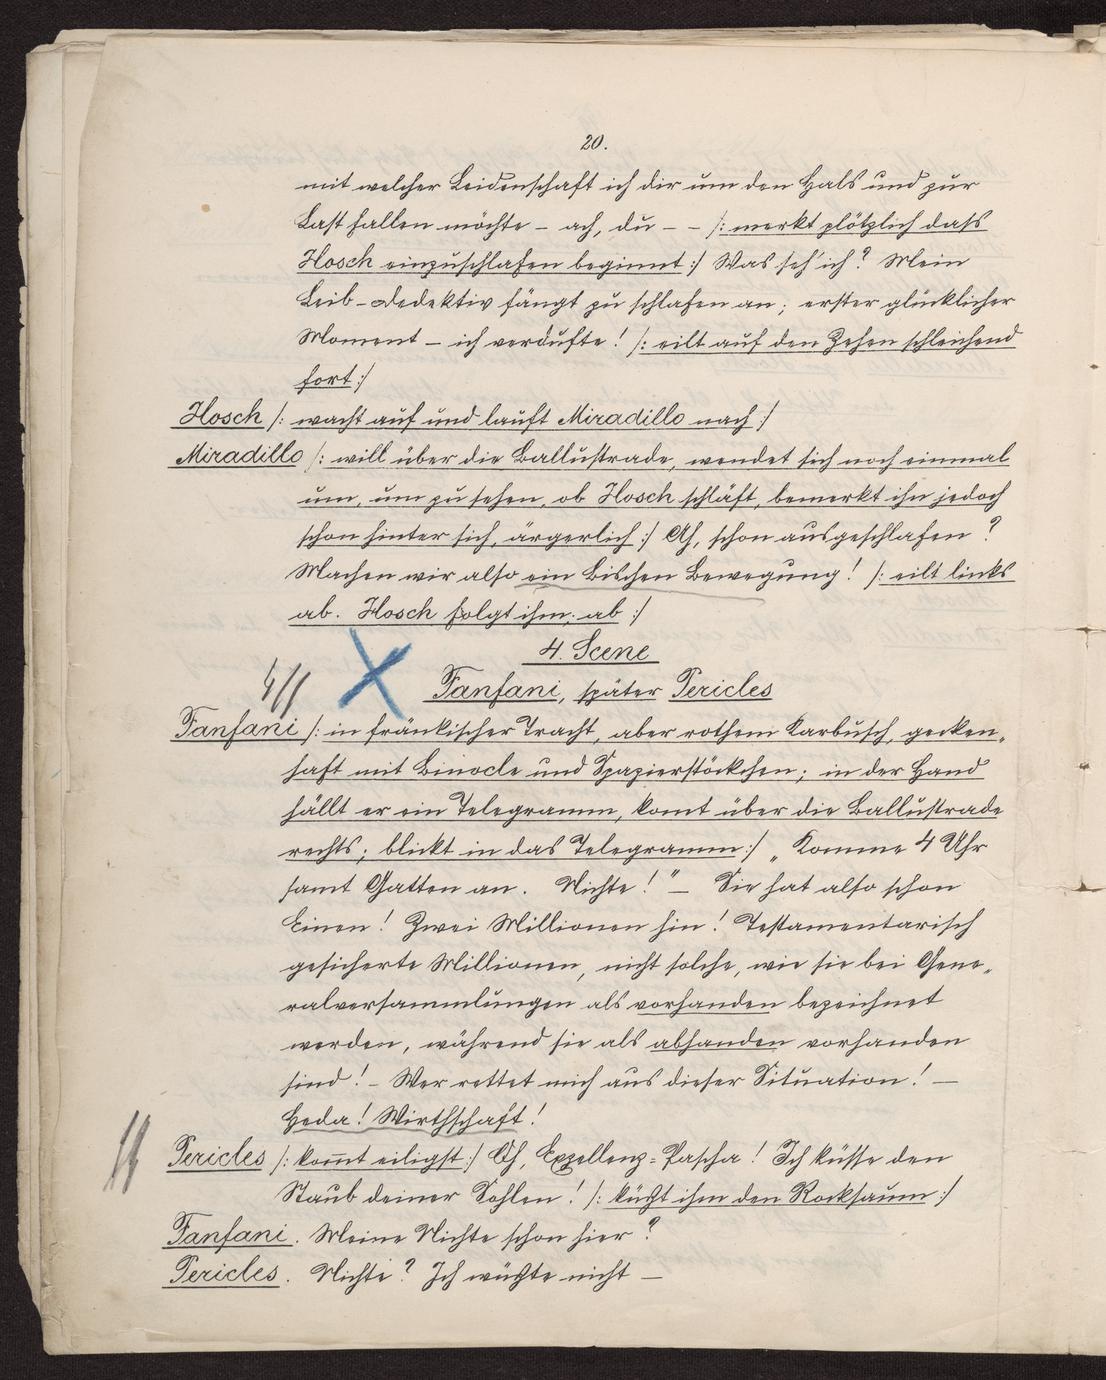 20.
mit welcher Leidenschaft ich dir um den Hals und zur
Last fallen möchte – ach, du – – /: merkt plötzlich dass
Hosch einzuschlafen beginnt :/ Was seh' ich? Mein
Leib-Dedektiv fängt zu schlafen an; erster glücklicher
Moment – ich verdufte! /: eilt auf den Zehen schleichend
fort :/
Hosch /: wacht auf und lauft Miradillo nach :/
Miradillo /: will über die Ballustrade, wendet sich noch einmal
um, um zu sehen, ob Hosch schläft, bemerkt ihn jedoch
schon hinter sich, ärgerlich :/ Ah, schon ausgeschlafen?
Machen wir also ein Bischen Bewegung! /: eilt links
ab. Hosch folgt ihm; ab :/
4. Scene
Fanfani, später Pericles
Fanfani /: in fränkischer Tracht, aber rothem Karbusch, gecken-
haft mit Binocle und Spazierstöckchen; in der Hand
hällt er ein Telegramm, komt über die Ballustrade
rechts; blickt in das Telegramm :/ „Komme 4 Uhr
samt Gatten an. Nichte!" – Sie hat also schon
Einen! Zwei Millionen hin! Testamentarisch
gesicherte Millionen, nicht solche, wie sie bei Gene-
ralversammlungen als vorhanden bezeichnet
werden, während sie als abhanden vorhanden
sind! – Wer rettet mich aus dieser Situation! –
Heda! Wirthschaft!
Pericles /: kom̅t eiligst :/ Ah, Exzellenz-Pascha! Ich küsse den
Staub deiner Sohlen! /: küßt ihm den Rocksaum :/
Fanfani. Meine Nichte schon hier?
Pericles. Nichte? Ich wüßte nicht –